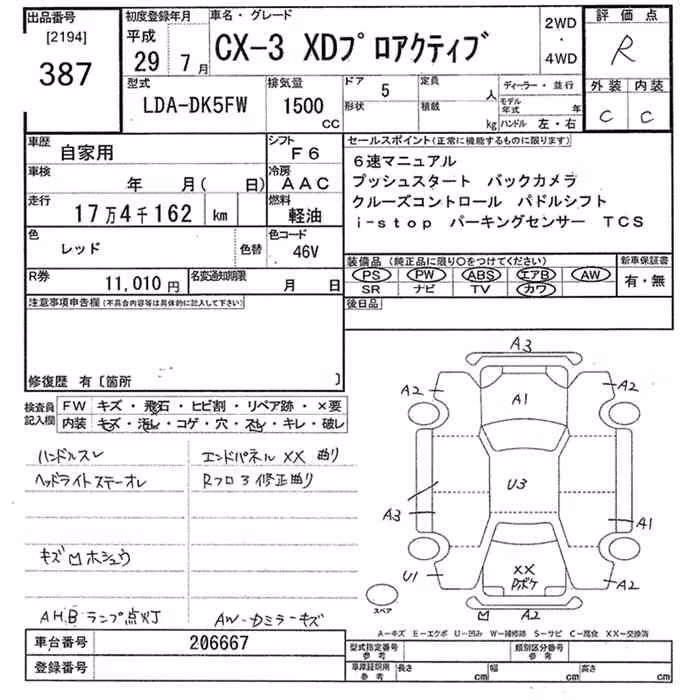 出品番号 初度登録年月 車名・グレード 2WD・4WD 評価点
[2194] 平成
387 29 7月 CX-3 XDプロアクティブ R
型式 排気量 ドア 5 定員 人 ディーラー・並行 外装 内装
LDA-DK5FW 1500 CC 形状 積載 kg モデル年式 年 C C
ハンドル 左・右
車歴 自家用 シフト F6 セールスポイント(正常に機能するものに限ります)
車検 年 月( 日) 冷房 AAC 6速マニュアル
プッシュスタート バックカメラ
走行 17万4千162 km 燃料 軽油 クルーズコントロール パドルシフト
i-stop パーキングセンサー TCS
色 レッド 色替 色コード 46V
装備品(純正品に限り〇をつけてください) 新車保証書
PS PW ABS エアB AW 有・無
SR ナビ TV カワ
R券 11,010円 名変通知期限 月 日 後日品
注意事項申告欄(不具合内容等は具体的に記入して下さい)
修復歴 有〔箇所 〕
検査員記入欄 FW キズ・飛石・ヒビ割・リペア跡・×要
内装 キズ・汚れ・コゲ・穴・スレ・キレ・破レ
ハンドルスレ エンドパネル XX 曲り
ヘッドライトステーオレ Rフロア修正曲り
キズ凹ホシュウ
AHBランプ点灯 AW・カミラーキズ
A3
A2 A1 A2
U3
A3 A1
U1 XX Pボケ A2
スペア 凹 A2
A-キズ E-エクボ U-凹み W-補修跡 S-サビ C-腐食 XX-交換済
車台番号 206667 型式指定番号 参考 類別区分番号 参考
登録番号 車庫証明用 参考 長さ cm 幅 cm 高さ cm